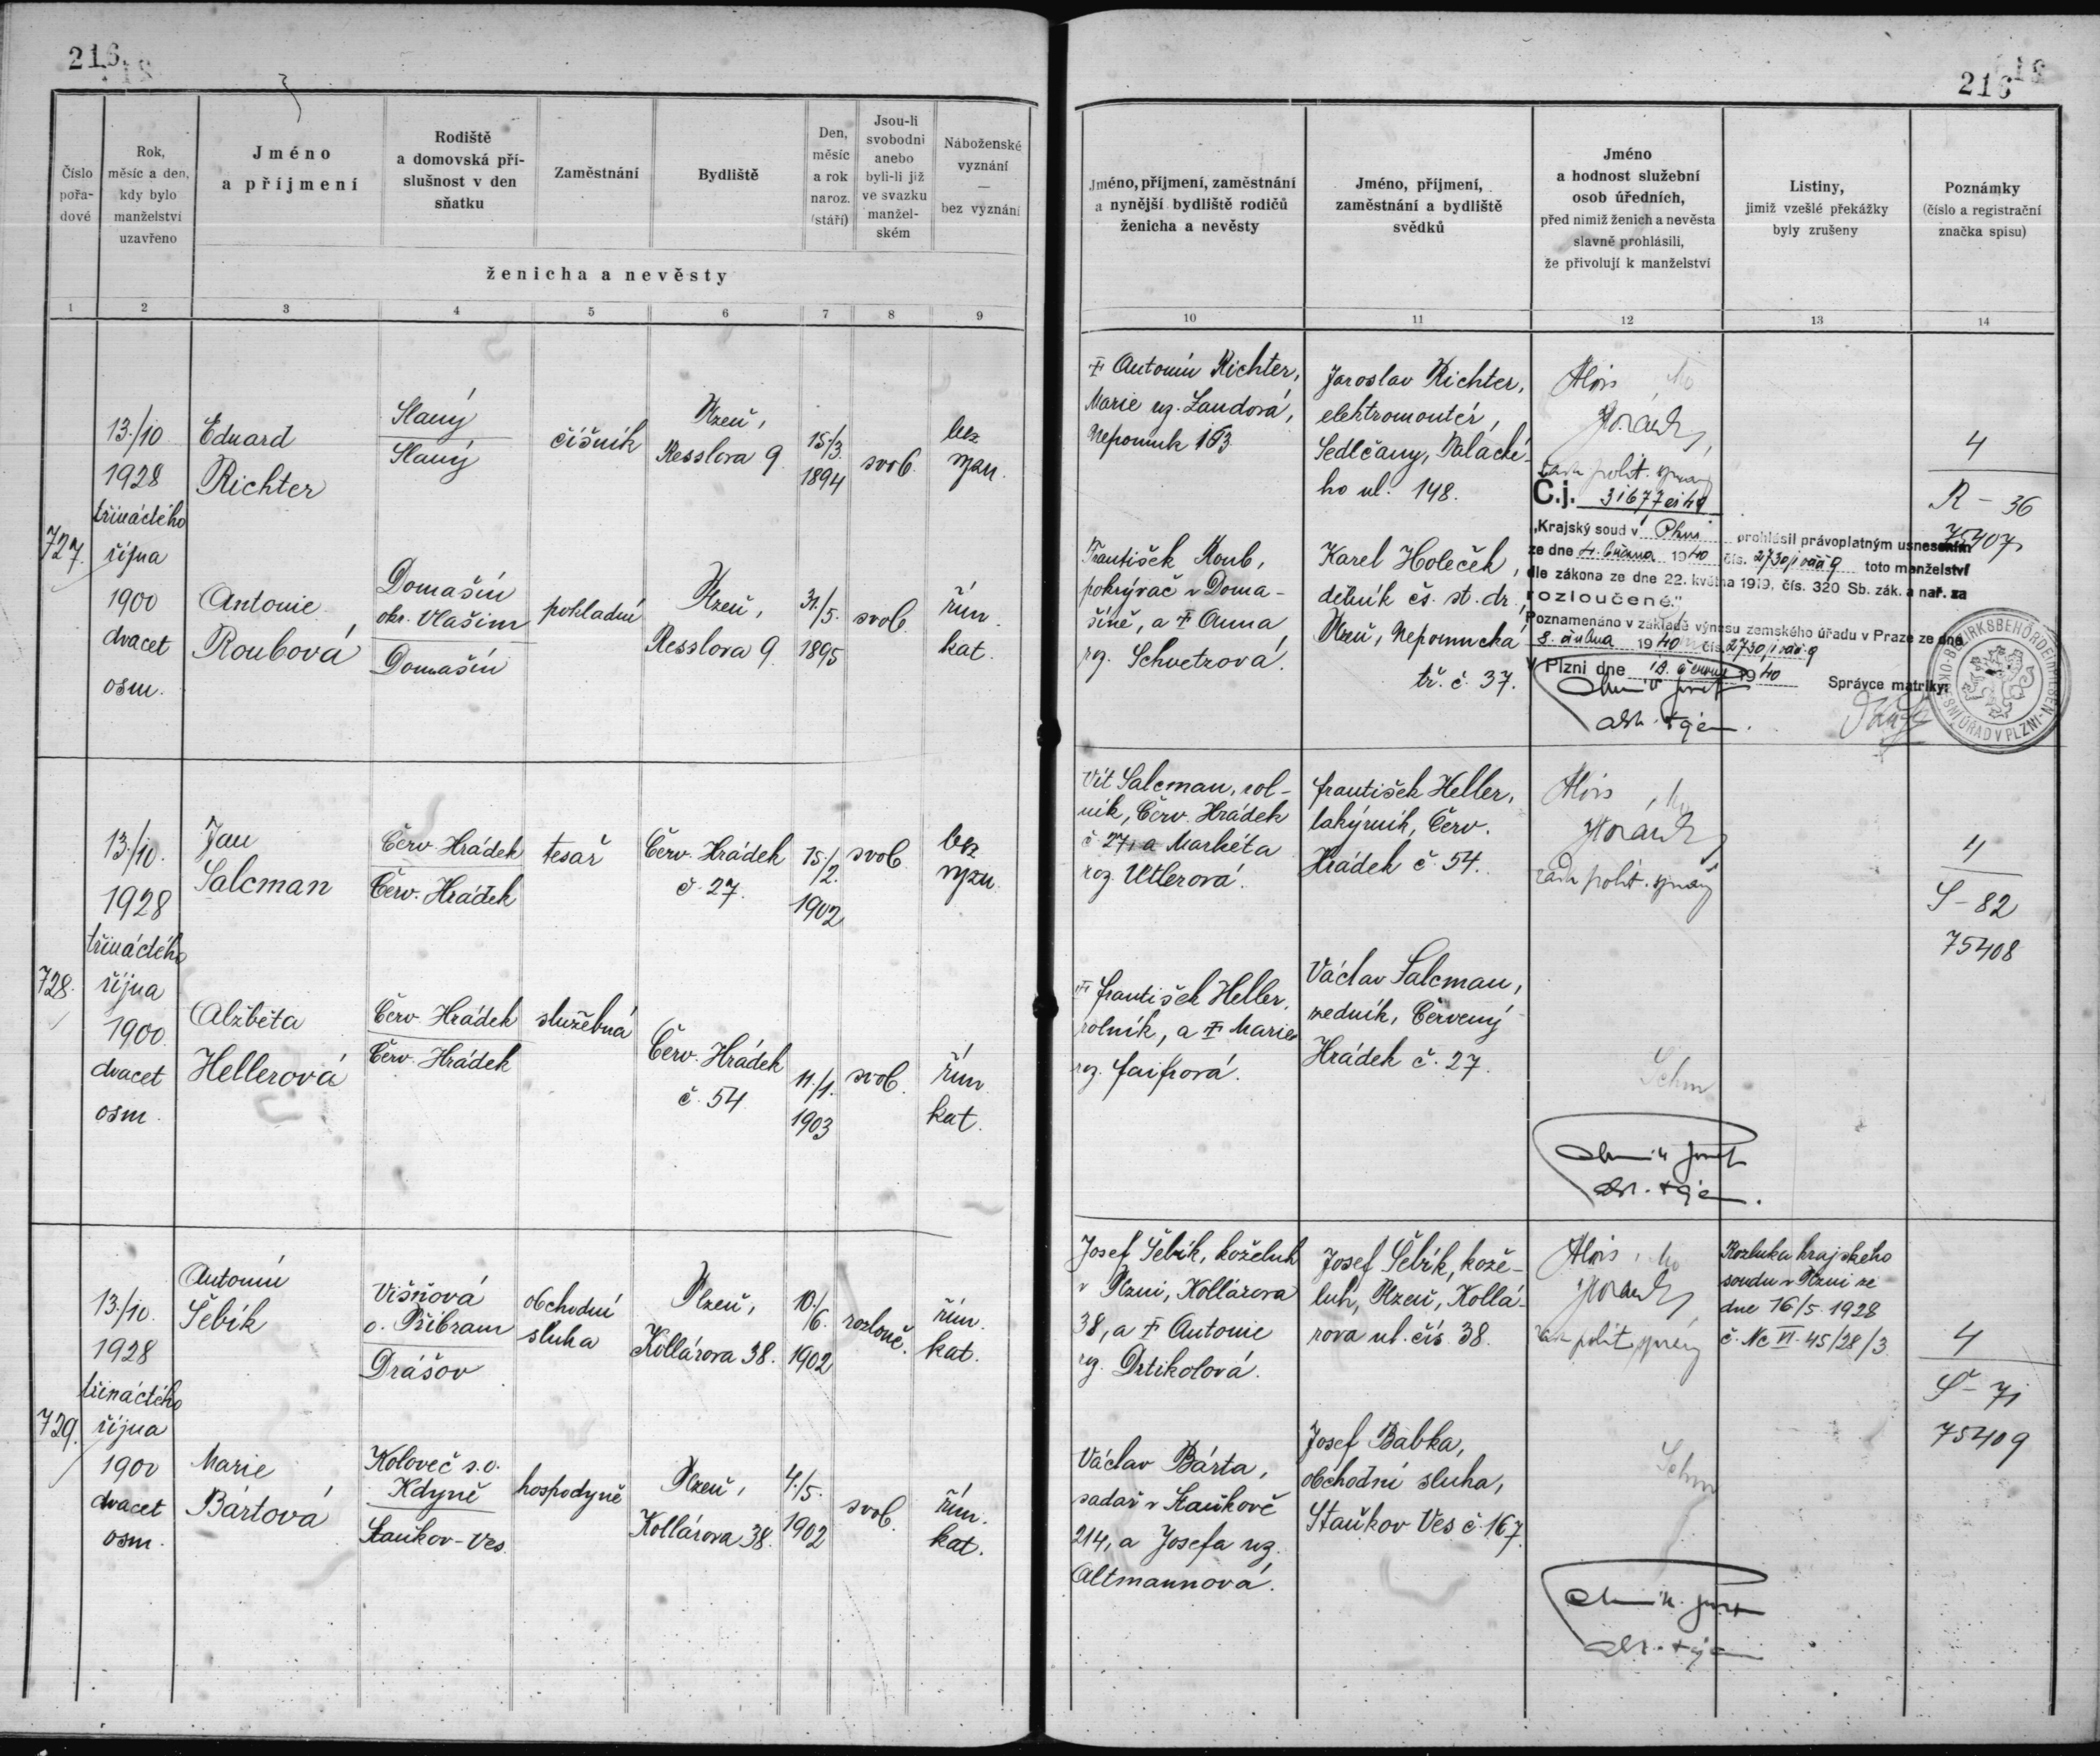 216
Číslo pořa- dové
Rok, měsíc a den, kdy bylo manželství uzavřeno
Jméno a příjmení
Rodiště a domovská pří- slušnost v den sňatku
Zaměstnání
Bydliště
Den, měsíc a rok naroz. (stáří)
Jsou-li svobodni anebo byli-li již ve svazku manžel- ském
Náboženské vyznání — bez vyznání
ženicha a nevěsty
1 2 3 4 5 6 7 8 9
727.
13./10
1928
třináctého
října
1900
dvacet
osm.
Eduard
Richter
Slaný
Slaný
číšník
Plzeň,
Resslova 9
15/3.
1894
svob.
bez
vyzn.
Antonie
Roubová
Domašín
okr. Vlašim
Domašín
pokladní
Plzeň,
Resslova 9
31./5.
1895
svob.
řím.
kat.
728.
13./10.
1928
třináctého
října
1900
dvacet
osm
Jan
Salcman
Červ. Hrádek
Červ. Hrádek
tesař
Červ. Hrádek
č. 27.
15./2.
1902
svob.
bez
vyzn.
Alžběta
Hellerová
Červ. Hrádek
Červ. Hrádek
služebná
Červ. Hrádek
č. 54
11./1.
1903
svob.
řím.
kat.
729.
13./10.
1928
třináctého
října
1900
dvacet
osm.
Antonín
Šebík
Višňová
o. Příbram
Drásov
obchodní
sluha
Plzeň,
Kollárova 38.
10./6.
1902
rozlouč.
řím.
kat.
Marie
Bártová
Koloveč s.o.
Kdyně
Staňkov-Ves
hospodyně
Plzeň,
Kollárova 38.
4./5.
1902
svob.
řím.
kat.
216
Jméno, příjmení, zaměstnání
a nynější bydliště rodičů
ženicha a nevěsty
Jméno, příjmení,
zaměstnání a bydliště
svědků
Jméno
a hodnost služební
osob úředních,
před nimiž ženich a nevěsta
slavně prohlásili,
že přivolují k manželství
Listiny,
jimiž vzešlé překážky
byly zrušeny
Poznámky
(číslo a registrační
značka spisu)
10 11 12 13 14
Antonín Richter,
Marie roz. Landová,
Nepomuk 163
František Roub,
pokrývač v Doma-
šíně, a Anna
roz. Schvetrová.
Jaroslav Richter,
elektromontér,
Sedlčany, Palacké-
ho ul. 148.
Karel Holeček,
dělník čs. st. dr.,
Plzeň, Nepomucká
tř. č. 37.
Alois
Horák,
rada polit. správy
Č.j. 31677
„Krajský soud v Plzni prohlásil právoplatným usnesením
ze dne 4. 1940 čís. 2730 toto manželství
dle zákona ze dne 22. května 1919, čís. 320 Sb. zák. a nař. za
rozloučené."
Poznamenáno v základě výnosu zemského úřadu v Praze ze dne
8. dubna 1940 čís. 2730
V Plzni dne 18. června 1940
Správce matriky:
4
R - 36
75407
Vít Salcman, rol-
ník, Červ. Hrádek
č. 27, a Markéta
roz. Utlerová.
František Heller,
rolník, a Marie
roz. Faifrová.
František Heller,
lakýrník, Červ.
Hrádek č. 54.
Václav Salcman,
zedník, Červený
Hrádek č. 27.
Alois
Horák,
rada polit. správy
4
S - 82
75408
Josef Šebík, koželuh
v Plzni, Kollárova
38, a Antonie
roz. Drtikolová.
Václav Bárta,
sadař v Staňkově
214, a Josefa roz.
Altmannová.
Josef Šebík, kože-
luh, Plzeň, Kollá-
rova ul. čís. 38.
Josef Babka,
obchodní sluha,
Staňkov Ves č. 167.
Alois
Horák,
rada polit. správy
Rozluka krajského
soudu v Plzni ze
dne 16/5. 1928
č. Nc VI. 45/28/3
4
Š - 71
75409